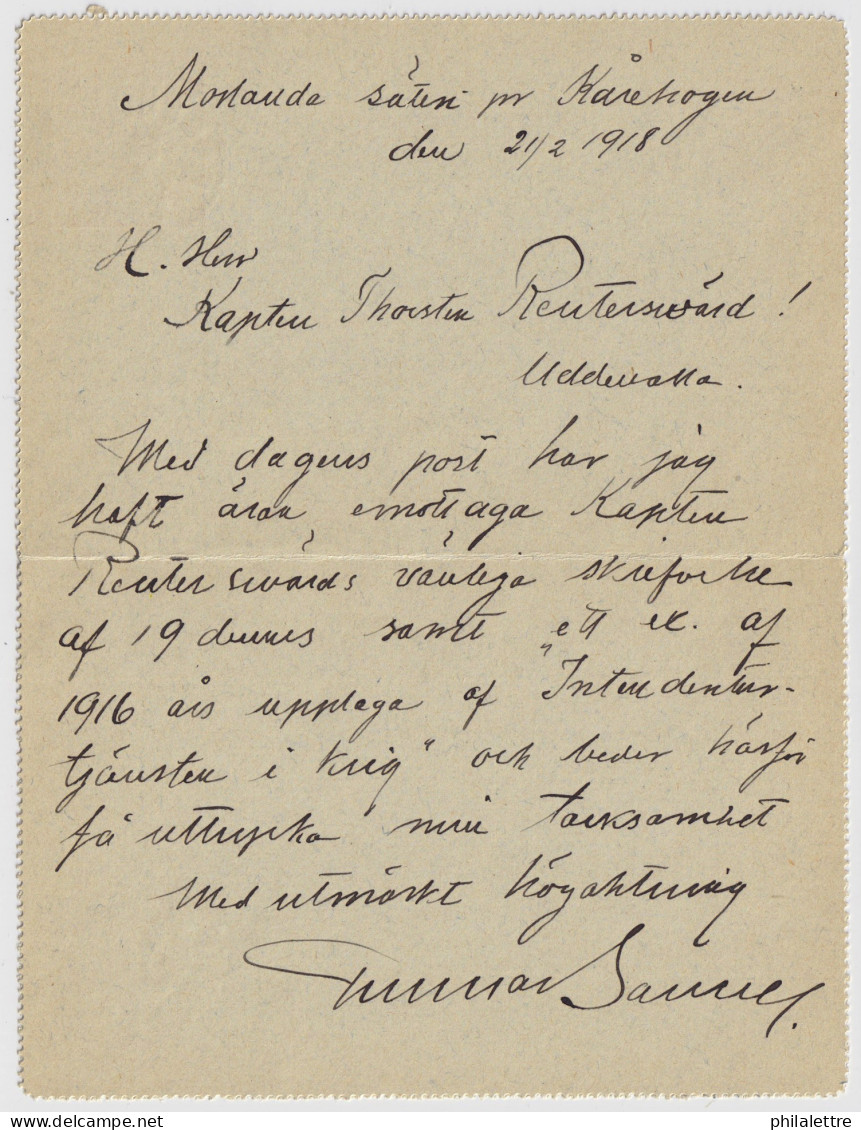 Morlanda säteri pr Kårehogen
den 21/2 1918
H. Herr
Kapten Thorsten Reutersvärd!
Uddevalla.
Med dagens post har jag
haft äran emottaga Kapten
Reutersvärds vänliga skrifvelse
af 19 dennes samt ett ex. af
1916 års upplaga af "Intendentur-
tjänsten i krig" och beder härför
få uttrycka min tacksamhet
Med utmärkt högaktning
Gunnar
delcampe.net
philalettre